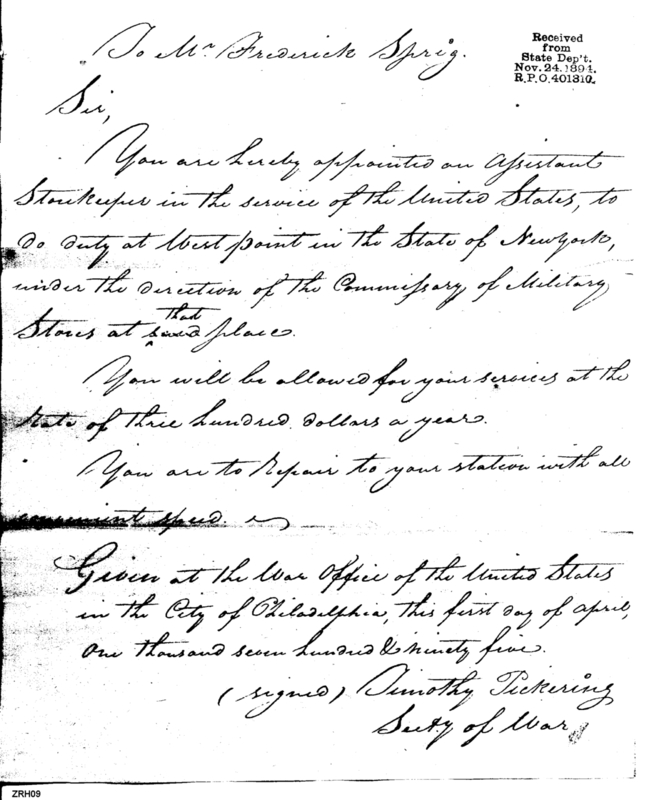 To Mr Frederick Sprig.
Received
from
State Dep't.
Nov. 24. 1894.
R.P.O. 401310.
Sir,
You are hereby appointed an Assistant
Storekeeper in the service of the United States, to
do duty at West point in the State of New York,
under the direction of the Commissary of Military
that
Stores at said place.
You will be allowed for your services at the
Rate of three hundred dollars a year.
You are to Repair to your station with all
convenient speed.
Given at the War Office of the United States
in the City of Philadelphia, this first day of April,
One thousand seven hundred & ninety five.
(signed) Timothy Pickering
Secty of War
ZRH09